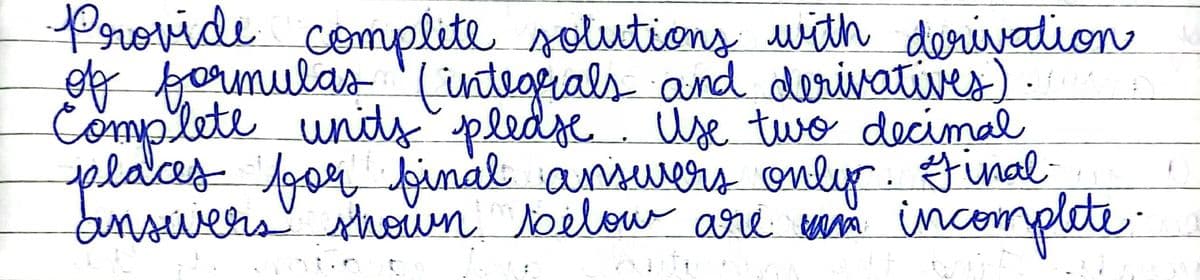 Provide complete solutions with derivation
of formulas (integrals and derivatives).
Complete units please. Use two decimal
places for final answers only. Final
answers shown below are incomplete.